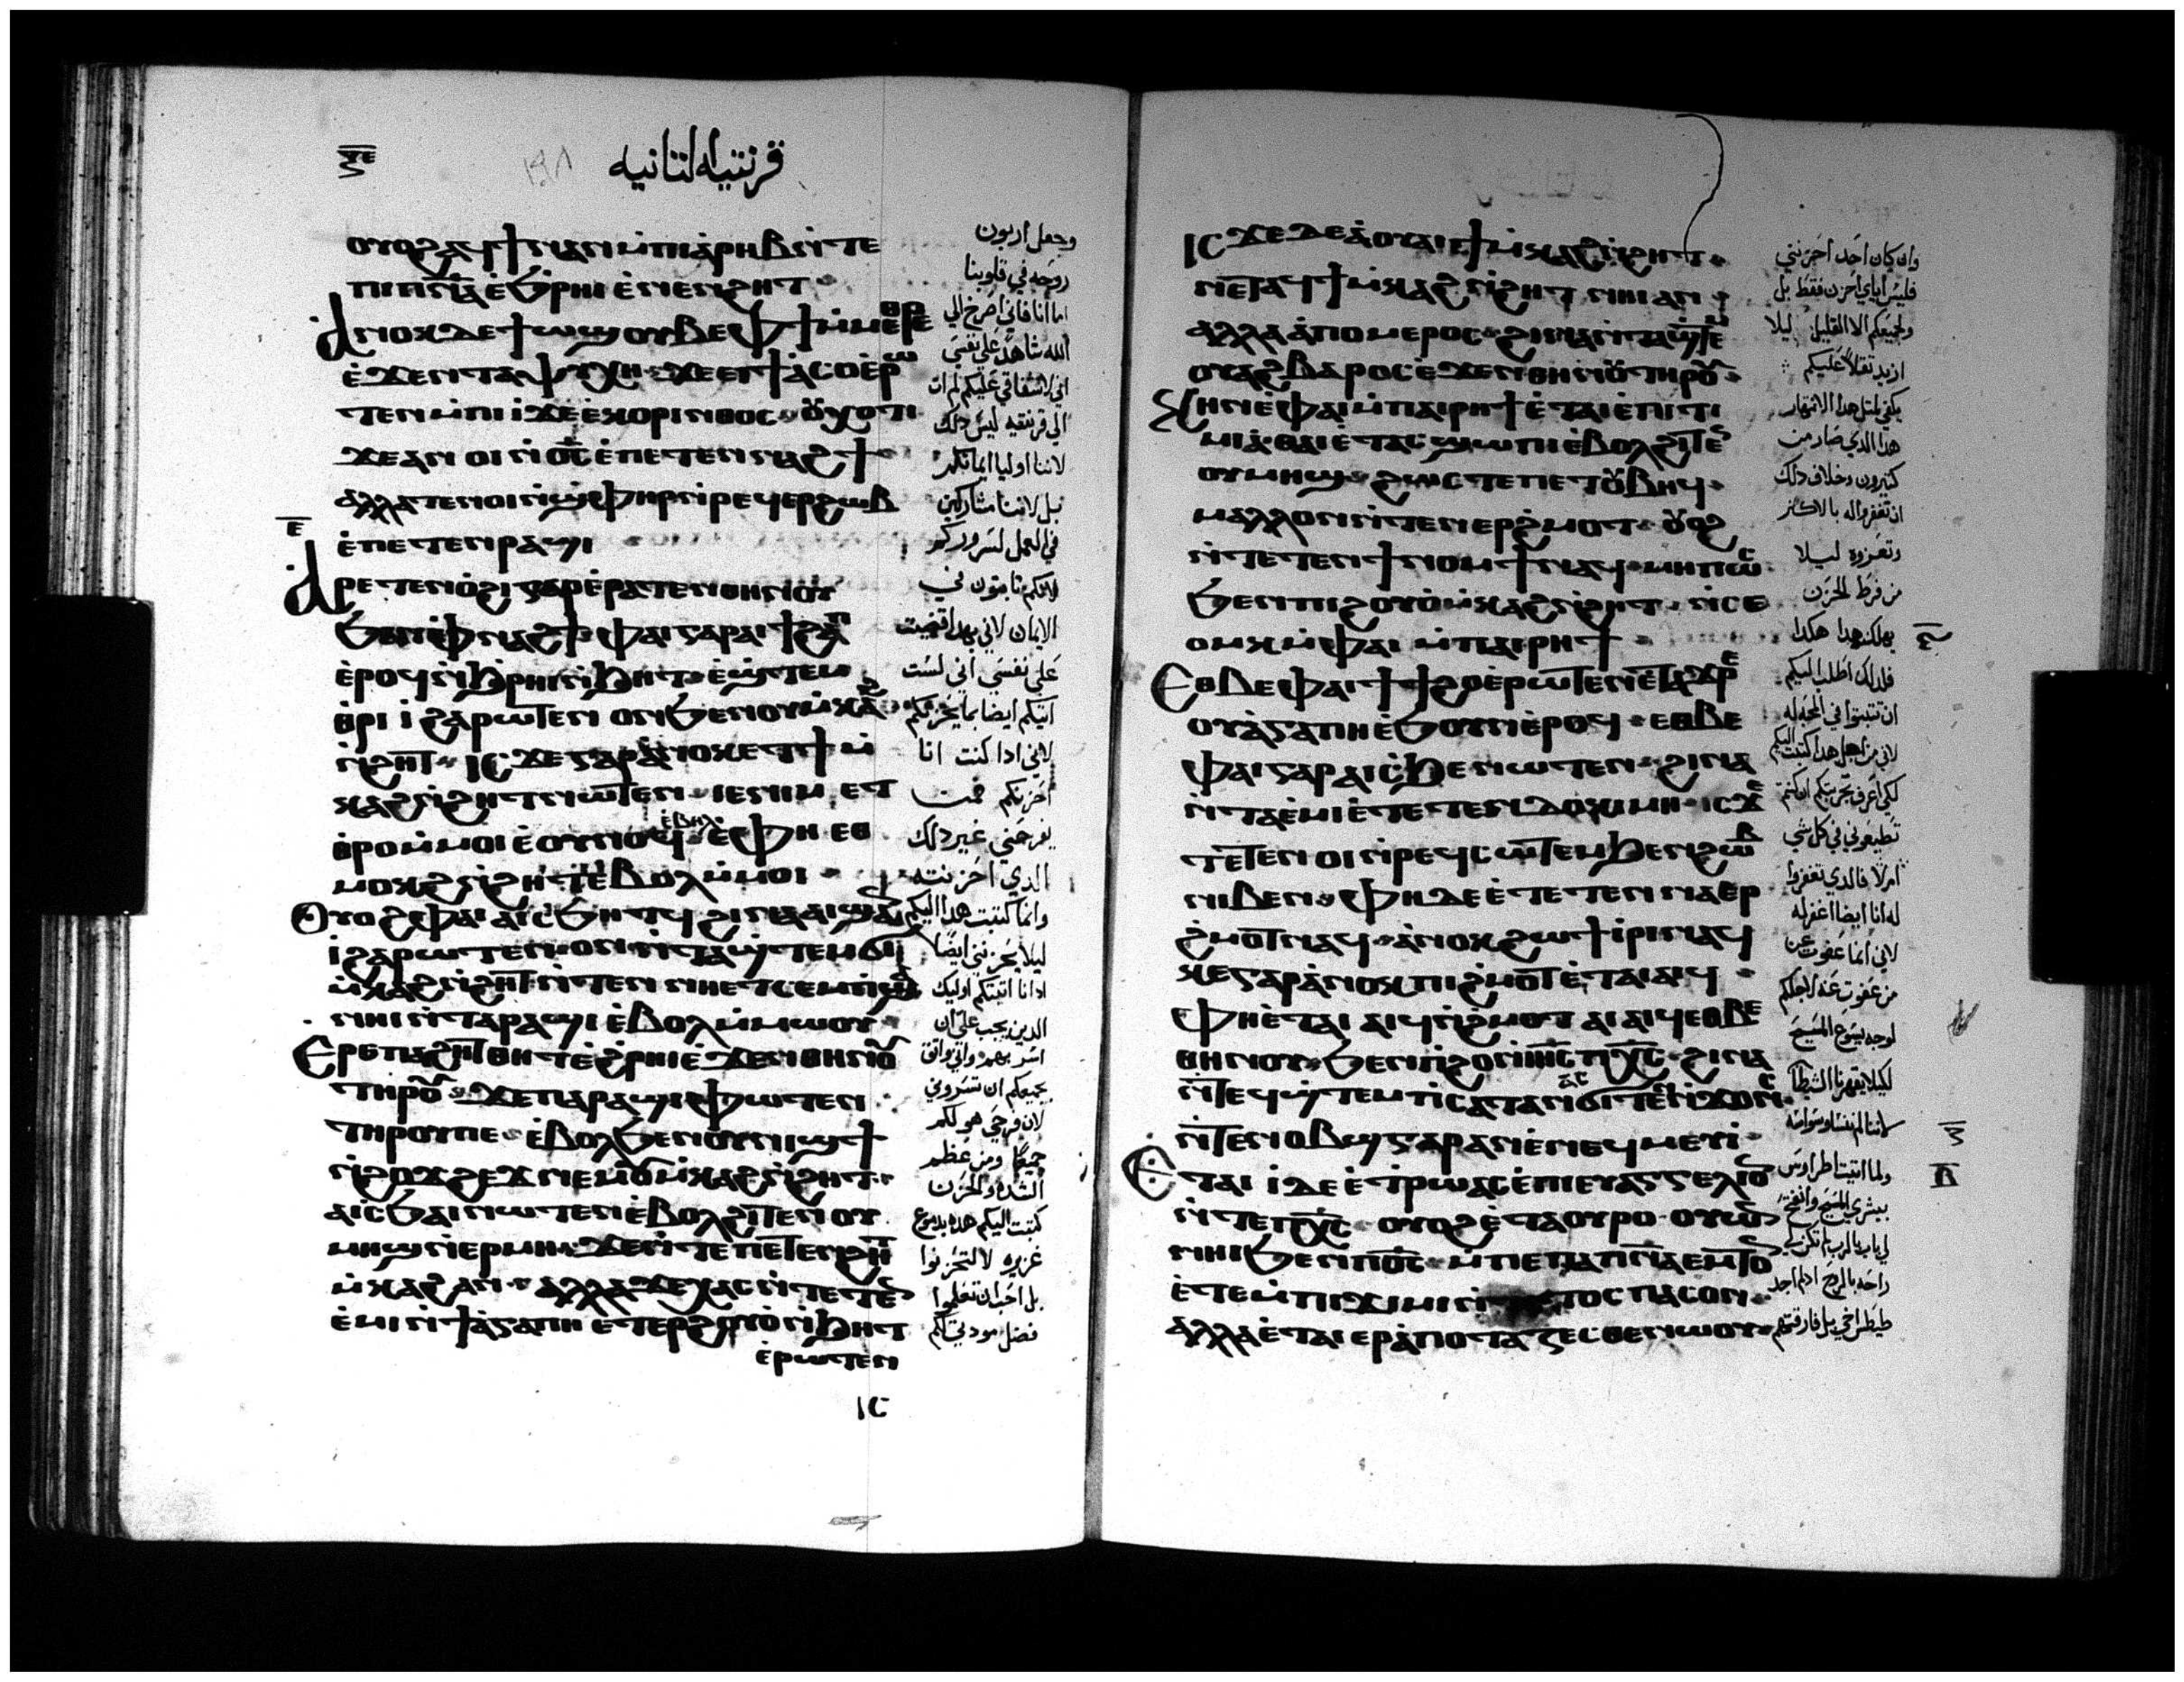 قرنتيه الثانيه
ⲟⲩⲟϩ ⲁϥϯ ⲛⲁⲛ ⲙ̇ⲡⲓⲁ̇ⲣⲏⲃ ⲛ̇ⲧⲉ
ⲡⲓⲡⲛ̅ⲁ̅ ⲉ̇ϧ̇ⲣⲏⲓ ⲉ̇ⲛⲉⲛϩⲏⲧ
ⲁ̇ⲛⲟⲕ ⲇⲉ ϯⲱϣ ⲟⲩⲃⲉ ⲫϯ ⲙ̇ⲙⲉⲑⲣⲉ
ⲉ̇ϫⲉⲛ ⲧⲁⲯⲩⲭⲏ ϫⲉ ⲉⲓϯⲁ̇ⲥⲟ ⲉ̇ⲣⲱ
ⲧⲉⲛ ⲙ̇ⲡⲓⲓ̇ ϫⲉ ⲉ̇ⲕⲟⲣⲓⲛⲑⲟⲥ ⲟⲩⲭ ⲟⲧⲓ
ϫⲉ ⲁⲛⲟⲓ ⲛ̇ⲟ̅ⲥ̅ ⲉ̇ⲡⲉⲧⲉⲛⲛⲁϩϯ
ⲁⲗⲗⲁ ⲧⲉⲛⲟⲓ ⲛ̇ϣⲫⲏⲣ ⲛ̇ⲣⲉϥⲉⲣϩⲱⲃ
ⲉ̇ⲡⲉⲧⲉⲛⲣⲁϣⲓ
ⲁ̇ⲣⲉⲧⲉⲛⲟ̇ϩⲓ ⲅⲁⲣ ⲉ̇ⲣⲁⲧⲉⲛⲑⲏⲛⲟⲩ
ϧⲉⲛ ⲫⲛⲁϩϯ ⲫⲁⲓ ⲅⲁⲣ ⲁⲓϯϩⲁⲡ
ⲉ̇ⲣⲟϥ ⲛ̇ϧ̇ⲣⲏⲓ ⲛ̇ϧⲏⲧ ⲉ̇ϣ̇ⲧⲉⲙ
ⲑⲣⲓⲓ̇ ϩⲁⲣⲱⲧⲉⲛ ⲟⲛ ϧⲉⲛ ⲟⲩⲙ̇ⲕⲁϩ
ⲛ̇ϩⲏⲧ ⲓⲥϫⲉ ⲅⲁⲣ ⲁ̇ⲛⲟⲕ ⲉⲧϯ ⲙ̇
ⲕⲁϩ ⲛ̇ϩⲏⲧ ⲛⲱⲧⲉⲛ ⲓⲉ ⲛⲓⲙ ⲉⲧ
ⲑⲣⲟ ⲙ̇ⲙⲟⲓ ⲉ̇ⲟⲩⲛⲟϥ ⲉ̇ⲃⲏⲗ ⲉ̇ⲫⲏ ⲉⲑ
ⲙⲟⲕϩ ⲛ̇ϩⲏⲧ ⲉ̇ⲃⲟⲗ ⲙ̇ⲙⲟⲓ
ⲟⲩⲟϩ ⲫⲁⲓ ⲁⲓⲥϧⲏⲧϥ ϩⲓⲛⲁ ⲁⲓϣⲁⲛ
ⲓ̇ ϩⲁⲣⲱⲧⲉⲛ ⲟⲛ ⲛ̇ⲧⲁϣ̇ⲧⲉⲙϭⲓ
ⲙ̇ⲕⲁϩ ⲛ̇ϩⲏⲧ ⲛ̇ⲧⲉⲛ ⲛⲏ ⲉⲧⲥⲉⲙⲡϣⲁ
ⲛⲏⲓ ⲛ̇ⲧⲁⲣⲁϣⲓ ⲉ̇ⲃⲟⲗ ⲙ̇ⲙⲱⲟⲩ
ⲉⲣⲉ ⲡⲁϩⲏⲧ ⲑⲏⲧ ⲉ̇ϩ̇ⲣⲏⲓ ⲉ̇ϫⲉⲛ ⲑⲏⲛⲟⲩ
ⲧⲏⲣⲟⲩ ϫⲉ ⲡⲁⲣⲁϣⲓ ⲫⲱⲧⲉⲛ
ⲧⲏⲣⲟⲩ ⲡⲉ ⲉ̇ⲃⲟⲗ ϧⲉⲛ ⲟⲩⲛⲓϣϯ
ⲛ̇ϩⲟϫϩⲉϫ ⲛⲉⲙ ⲟⲩⲙ̇ⲕⲁϩ ⲛ̇ϩⲏⲧ
ⲁⲓⲥϧⲁⲓ ⲛⲱⲧⲉⲛ ⲉ̇ⲃⲟⲗ ϩⲓⲧⲉⲛ ⲟⲩ
ⲙⲏϣ ⲛ̇ⲉⲣⲙⲏ ϫⲉ ⲛ̇ⲧⲉ ⲡⲉⲧⲉⲛϩⲏⲧ
ⲙ̇ⲕⲁϩ ⲁⲛ ⲁⲗⲗⲁ ϫⲉⲭⲁⲥ ⲛ̇ⲧⲉⲧⲉⲛ
ⲉ̇ⲙⲓ ⲛ̇ϯⲁ̇ⲅⲁⲡⲏ ⲉⲧⲉⲣϩⲟⲩⲟ̇ ⲛ̇ϧⲏⲧ
ⲉ̇ⲣⲱⲧⲉⲛ
ⲓⲥ
وجعل اربون
روحه في قلوبنا
اما انا فاني اصرخ الي
الله شاهدا علي نفسي
اني لاشفاقي عليكم لم ات
الي قرنتيه ليس ذلك
لاننا اوليا ايمانكم
بل لاننا مشاركين
في العمل لسروركم
لانكم ثابتون في
الايمان لاني بهدا قضيت
علي نفسي اني لست
اتيكم ايضا بما يحزنكم
لاني ادا كنت انا
احزنكم فمن
يفرحني غير ذلك
الدي احزنته
وانما كتبت هدا اليكم
ليلا يحزنني ايضا
ادا انا اتيتكم اوليك
الدين يجب علي ان
اسر بهم واني واثق
بجميعكم ان تسروني
لان فرحي هو لكم
جميعا ومن عظم
الشده والحزن
كتبت اليكم هده بدموع
غزيره لا لتحزنوا
بل احب ان تعلموا
فضل مودتي لكم
ⲓⲥϫⲉ ⲇⲉ ⲁ̇ ⲟⲩⲁⲓ ϯ ⲙ̇ⲕⲁϩ ⲛ̇ϩⲏⲧ
ⲛⲉⲧⲁϥϯ ⲙ̇ⲕⲁϩ ⲛ̇ϩⲏⲧ ⲛⲏⲓ ⲁⲛ
ⲁⲗⲗⲁ ⲁ̇ⲡⲟ ⲙⲉⲣⲟⲥ ϩⲓⲛⲁ ⲛ̇ⲧⲁϣ̇ⲧⲉⲙ
ⲟⲩⲁϩ ⲃⲁⲣⲟⲥ ⲉ̇ϫⲉⲛ ⲑⲏⲛⲟⲩ ⲧⲏⲣⲟⲩ
ⲥⲕⲏⲛ ⲉ̇ⲫⲁⲓ ⲙ̇ⲡⲁⲓⲣⲏϯ ⲉ̇ⲧⲁⲓⲉ̇ⲡⲓⲧⲓ
ⲙⲓⲁ̇ ⲑⲁⲓ ⲉ̇ⲧⲁⲥϣⲱⲡⲓ ⲉ̇ⲃⲟⲗ ϩⲓⲧⲉⲛ
ⲟⲩⲙⲏϣ ϩⲱⲥⲧⲉ ⲡⲉⲧⲟⲩⲃⲏϥ
ⲙⲁⲗⲗⲟⲛ ⲛ̇ⲧⲉⲛⲉⲣϩ̇ⲙⲟⲧ ⲟⲩⲟϩ
ⲛ̇ⲧⲉⲧⲉⲛϯⲛⲟⲙϯ ⲛⲁϥ ⲙⲏⲡⲱⲥ
ϧⲉⲛ ⲡⲓϩⲟⲩⲟ̇ ⲙ̇ⲕⲁϩ ⲛ̇ϩⲏⲧ ⲛ̇ⲥⲉ
ⲟⲙⲕ ⲙ̇ⲫⲁⲓ ⲙ̇ⲡⲁⲓⲣⲏϯ
ⲉⲑⲃⲉ ⲫⲁⲓ ϯϯϩⲟ ⲉ̇ⲣⲱⲧⲉⲛ ⲉ̇ⲧⲁϫⲣⲉ
ⲟⲩⲁ̇ⲅⲁⲡⲏ ⲉ̇ϧⲟⲩⲛ ⲉ̇ⲣⲟϥ ⲉⲑⲃⲉ
ⲫⲁⲓ ⲅⲁⲣ ⲁⲓⲥϧⲉ ⲛⲱⲧⲉⲛ ϩⲓⲛⲁ
ⲛ̇ⲧⲁⲉ̇ⲙⲓ ⲉ̇ⲧⲉⲧⲉⲛⲇⲟⲕⲓⲙⲏ ⲓⲥϫⲉ
ⲧⲉⲧⲉⲛⲟⲓ ⲛ̇ⲣⲉϥⲥⲱⲧⲉⲙ ϧⲉⲛ ϩⲱⲃ
ⲛⲓⲃⲉⲛ ⲫⲏ ⲇⲉ ⲉ̇ⲧⲉⲧⲉⲛⲛⲁⲉⲣ
ϩ̇ⲙⲟⲧ ⲛⲁϥ ⲁ̇ⲛⲟⲕ ϩⲱ ϯⲓ̇ⲣⲓ ⲛⲁϥ
ⲕⲉ ⲅⲁⲣ ⲁ̇ⲛⲟⲕ ⲡⲓϩ̇ⲙⲟⲧ ⲉ̇ⲧⲁⲓⲁⲓϥ
ⲫⲏ ⲉ̇ⲧⲁⲓⲁⲓϥ ⲛ̇ϩ̇ⲙⲟⲧ ⲁⲓⲁⲓϥ ⲉⲑⲃⲉ
ⲑⲏⲛⲟⲩ ϧⲉⲛ ⲡ̇ϩⲟ ⲛ̇ⲓⲏ̅ⲥ̅ ⲡⲭ̅ⲥ̅ ϩⲓⲛⲁ
ⲛ̇ⲧⲉϥϣ̇ⲧⲉⲙ ⲡⲥⲁⲧⲁⲛⲁⲥ ϭⲓⲧⲉⲛ ⲛ̇ϫⲟⲛⲥ
ⲛ̇ⲧⲉⲛⲟⲃϣ ⲅⲁⲣ ⲁⲛ ⲉ̇ⲛⲉϥⲙⲉⲩⲓ
ⲉ̇ⲧⲁⲓⲓ̇ ⲇⲉ ⲉ̇ⲧⲣⲱⲁⲥ ⲉ̇ⲡⲓⲉⲩⲁⲅⲅⲉⲗⲓⲟⲛ
ⲛ̇ⲧⲉ ⲡⲭ̅ⲥ̅ ⲟⲩⲟϩ ⲉ̇ⲧⲁ ⲟⲩⲣⲟ ⲟⲩⲱⲛ
ⲛⲏⲓ ϧⲉⲛ ⲡⲟ̅ⲥ̅ ⲙ̇ⲡⲉ ⲡⲁⲡⲛ̅ⲁ̅ ⲉⲙⲧⲟⲛ
ⲉ̇ⲧⲉⲙ̇ⲡⲓϫⲓⲙⲓ ⲛ̇ⲧⲓⲧⲟⲥ ⲡⲁⲥⲟⲛ
ⲁⲗⲗⲁ ⲉ̇ⲧⲁⲓⲉⲣⲁ̇ⲡⲟⲧⲁⲍⲉⲥⲑⲉ ⲛⲱⲟⲩ
وان كان احد احزنني
فليس اياي احزن فقط بل
ولجميعكم الا القليل ليلا
ازيد ثقلا عليكم
يكفي لمثل هدا الانتهار
هدا الدي صار من
كثيرون وخلاف دلك
ان تغفروا له بالاكثر
وتعزوه ليلا
من فرط الحزن
يهلك هدا هكدا
فلدلك اطلب اليكم
ان تثبتوا في المحبه له
لاني من اجل هدا كتبت اليكم
لكي اعرف تجربتكم ان كنتم
تطيعوني في كل شي
ام لا فالدي تغفروا
له انا ايضا اغفر له
لاني انما عفوت عن
من عفوت عنه لاجلكم
لوجه يسوع المسيح
لكيلا يقهرنا الشيطان
لاننا لم ننسا وسواسه
ولما اتيت اطراوس
ببشري المسيح وانفتح
لي باب بالرب لم تكن لي
راحه بالروح اد لم اجد
طيطس اخي بل فارقتهم